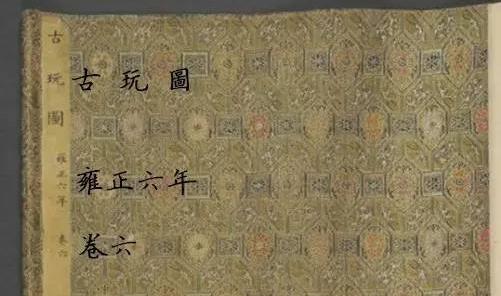 古玩圖
雍正六年 卷六
古玩圖
雍正六年
卷六